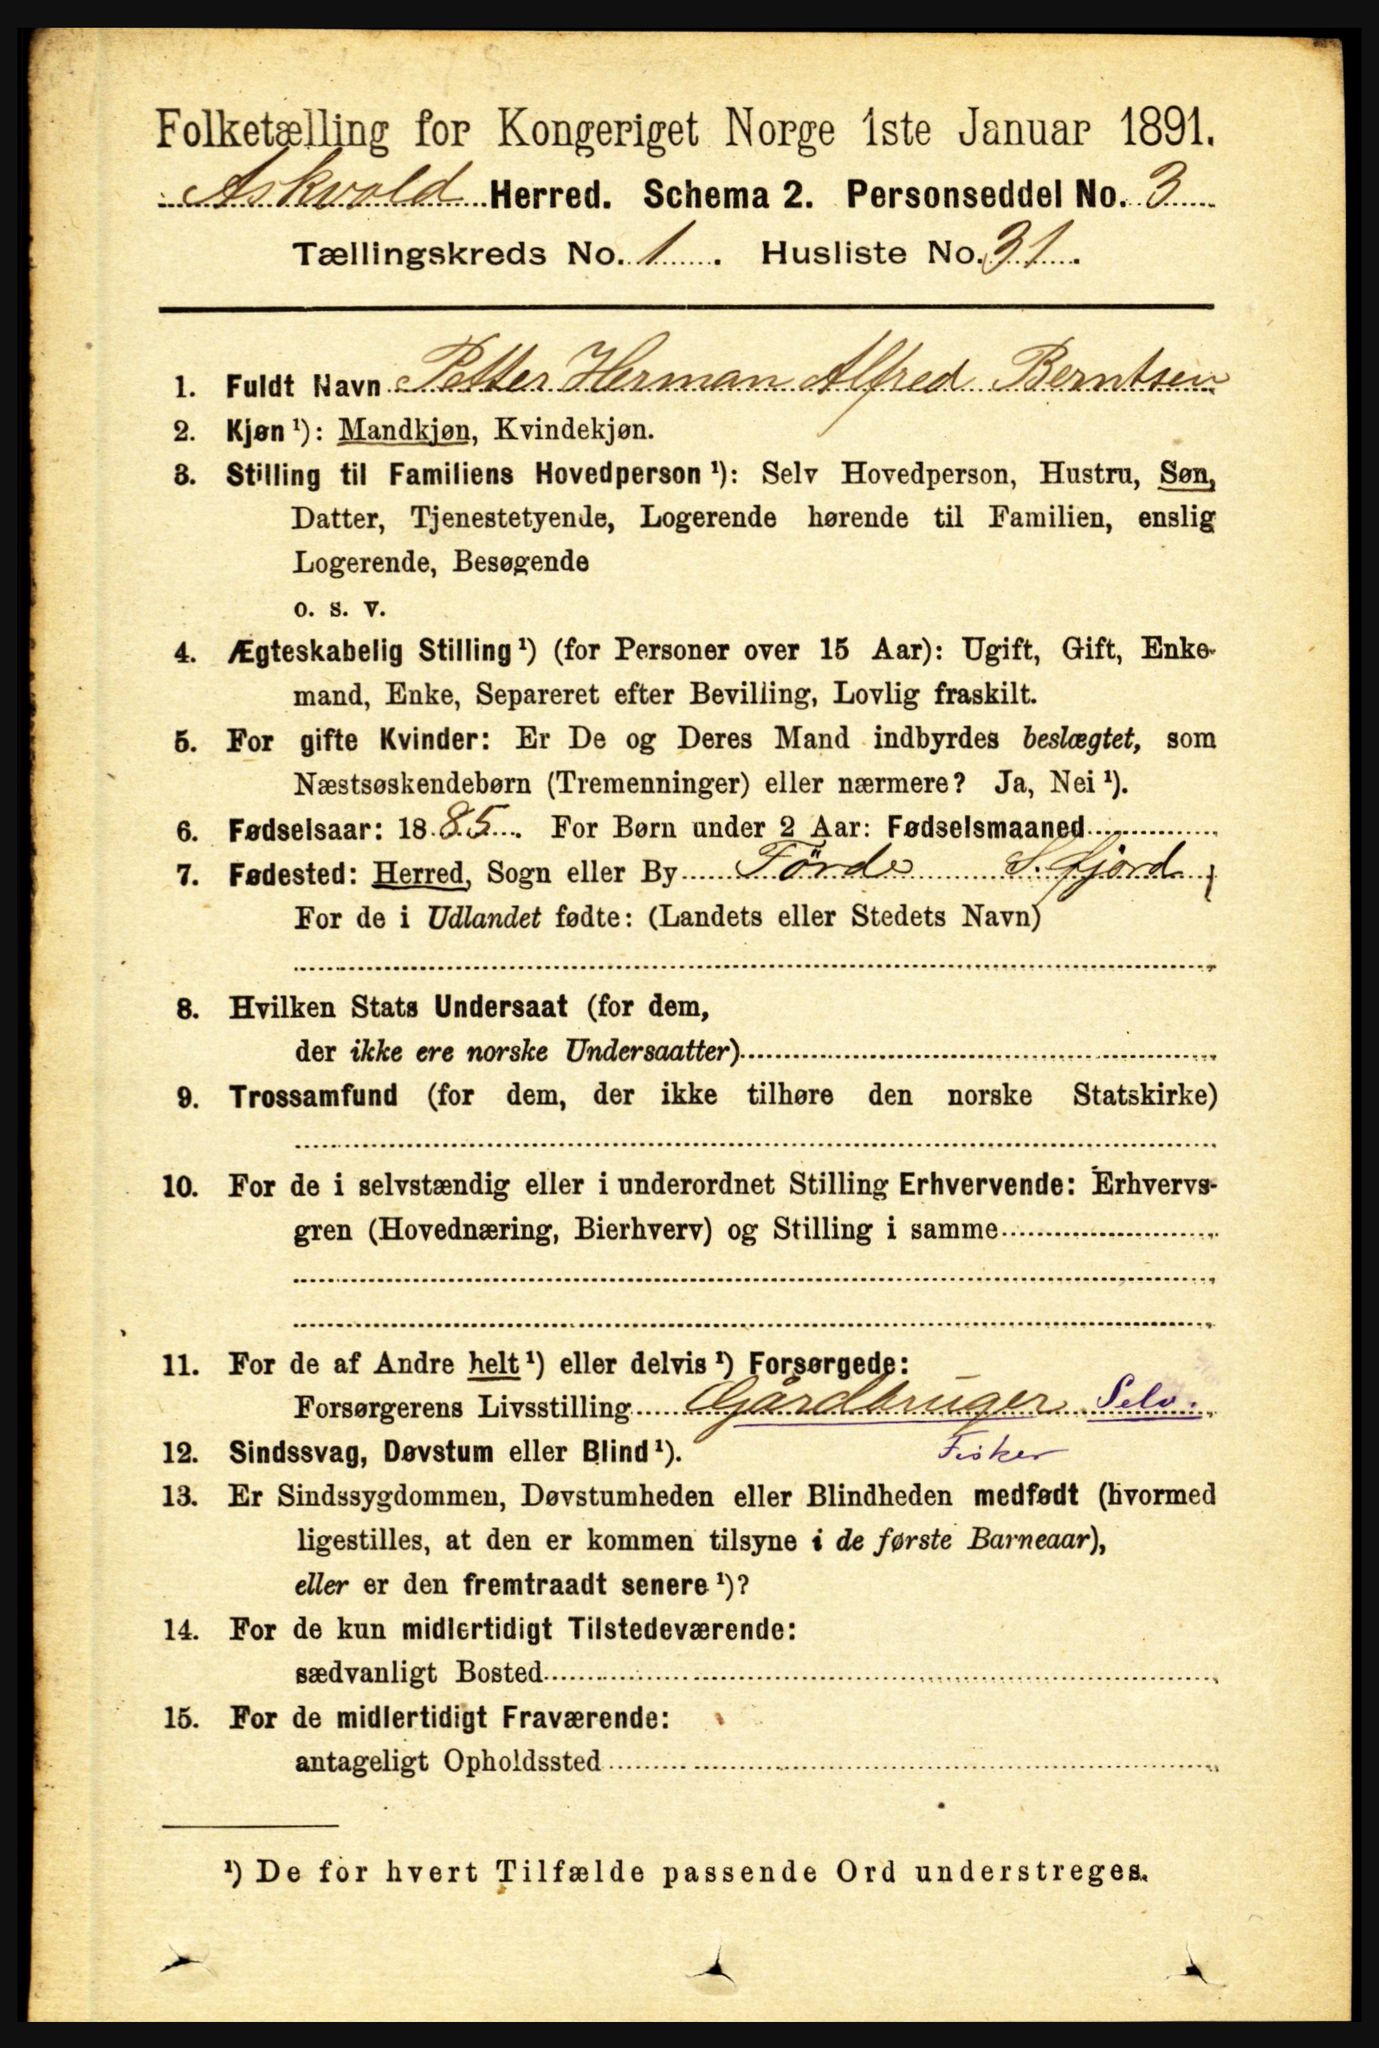 Folketælling for Kongeriget Norge 1ste Januar 1891.
Askvold Herred. Schema 2. Personseddel No. 3
Tællingskreds No. 1. Husliste No. 31.
1. Fuldt Navn Petter Herman Alfred Berntsen
2. Kjøn ¹): Mandkjøn, Kvindekjøn.
3. Stilling til Familiens Hovedperson ¹): Selv Hovedperson, Hustru, Søn,
Datter, Tjenestetyende, Logerende hørende til Familien, enslig
Logerende, Besøgende
o. s. v.
4. Ægteskabelig Stilling ¹) (for Personer over 15 Aar): Ugift, Gift, Enke-
mand, Enke, Separeret efter Bevilling, Lovlig fraskilt.
5. For gifte Kvinder: Er De og Deres Mand indbyrdes beslægtet, som
Næstsøskendebørn (Tremenninger) eller nærmere? Ja, Nei ¹).
6. Fødselsaar: 1885. For Børn under 2 Aar: Fødselsmaaned
7. Fødested: Herred, Sogn eller By Förde S. fjord
For de i Udlandet fødte: (Landets eller Stedets Navn)
8. Hvilken Stats Undersaat (for dem,
der ikke ere norske Undersaatter)
9. Trossamfund (for dem, der ikke tilhøre den norske Statskirke)
10. For de i selvstændig eller i underordnet Stilling Erhvervende: Erhvervs-
gren (Hovednæring, Bierhverv) og Stilling i samme
11. For de af Andre helt ¹) eller delvis ¹) Forsørgede:
Forsørgerens Livsstilling Gårdbruger Selv.
12. Sindssvag, Døvstum eller Blind ¹). Fisker
13. Er Sindssygdommen, Døvstumheden eller Blindheden medfødt (hvormed
ligestilles, at den er kommen tilsyne i de første Barneaar),
eller er den fremtraadt senere ¹)?
14. For de kun midlertidigt Tilstedeværende:
sædvanligt Bosted
15. For de midlertidigt Fraværende:
antageligt Opholdssted
¹) De for hvert Tilfælde passende Ord understreges.